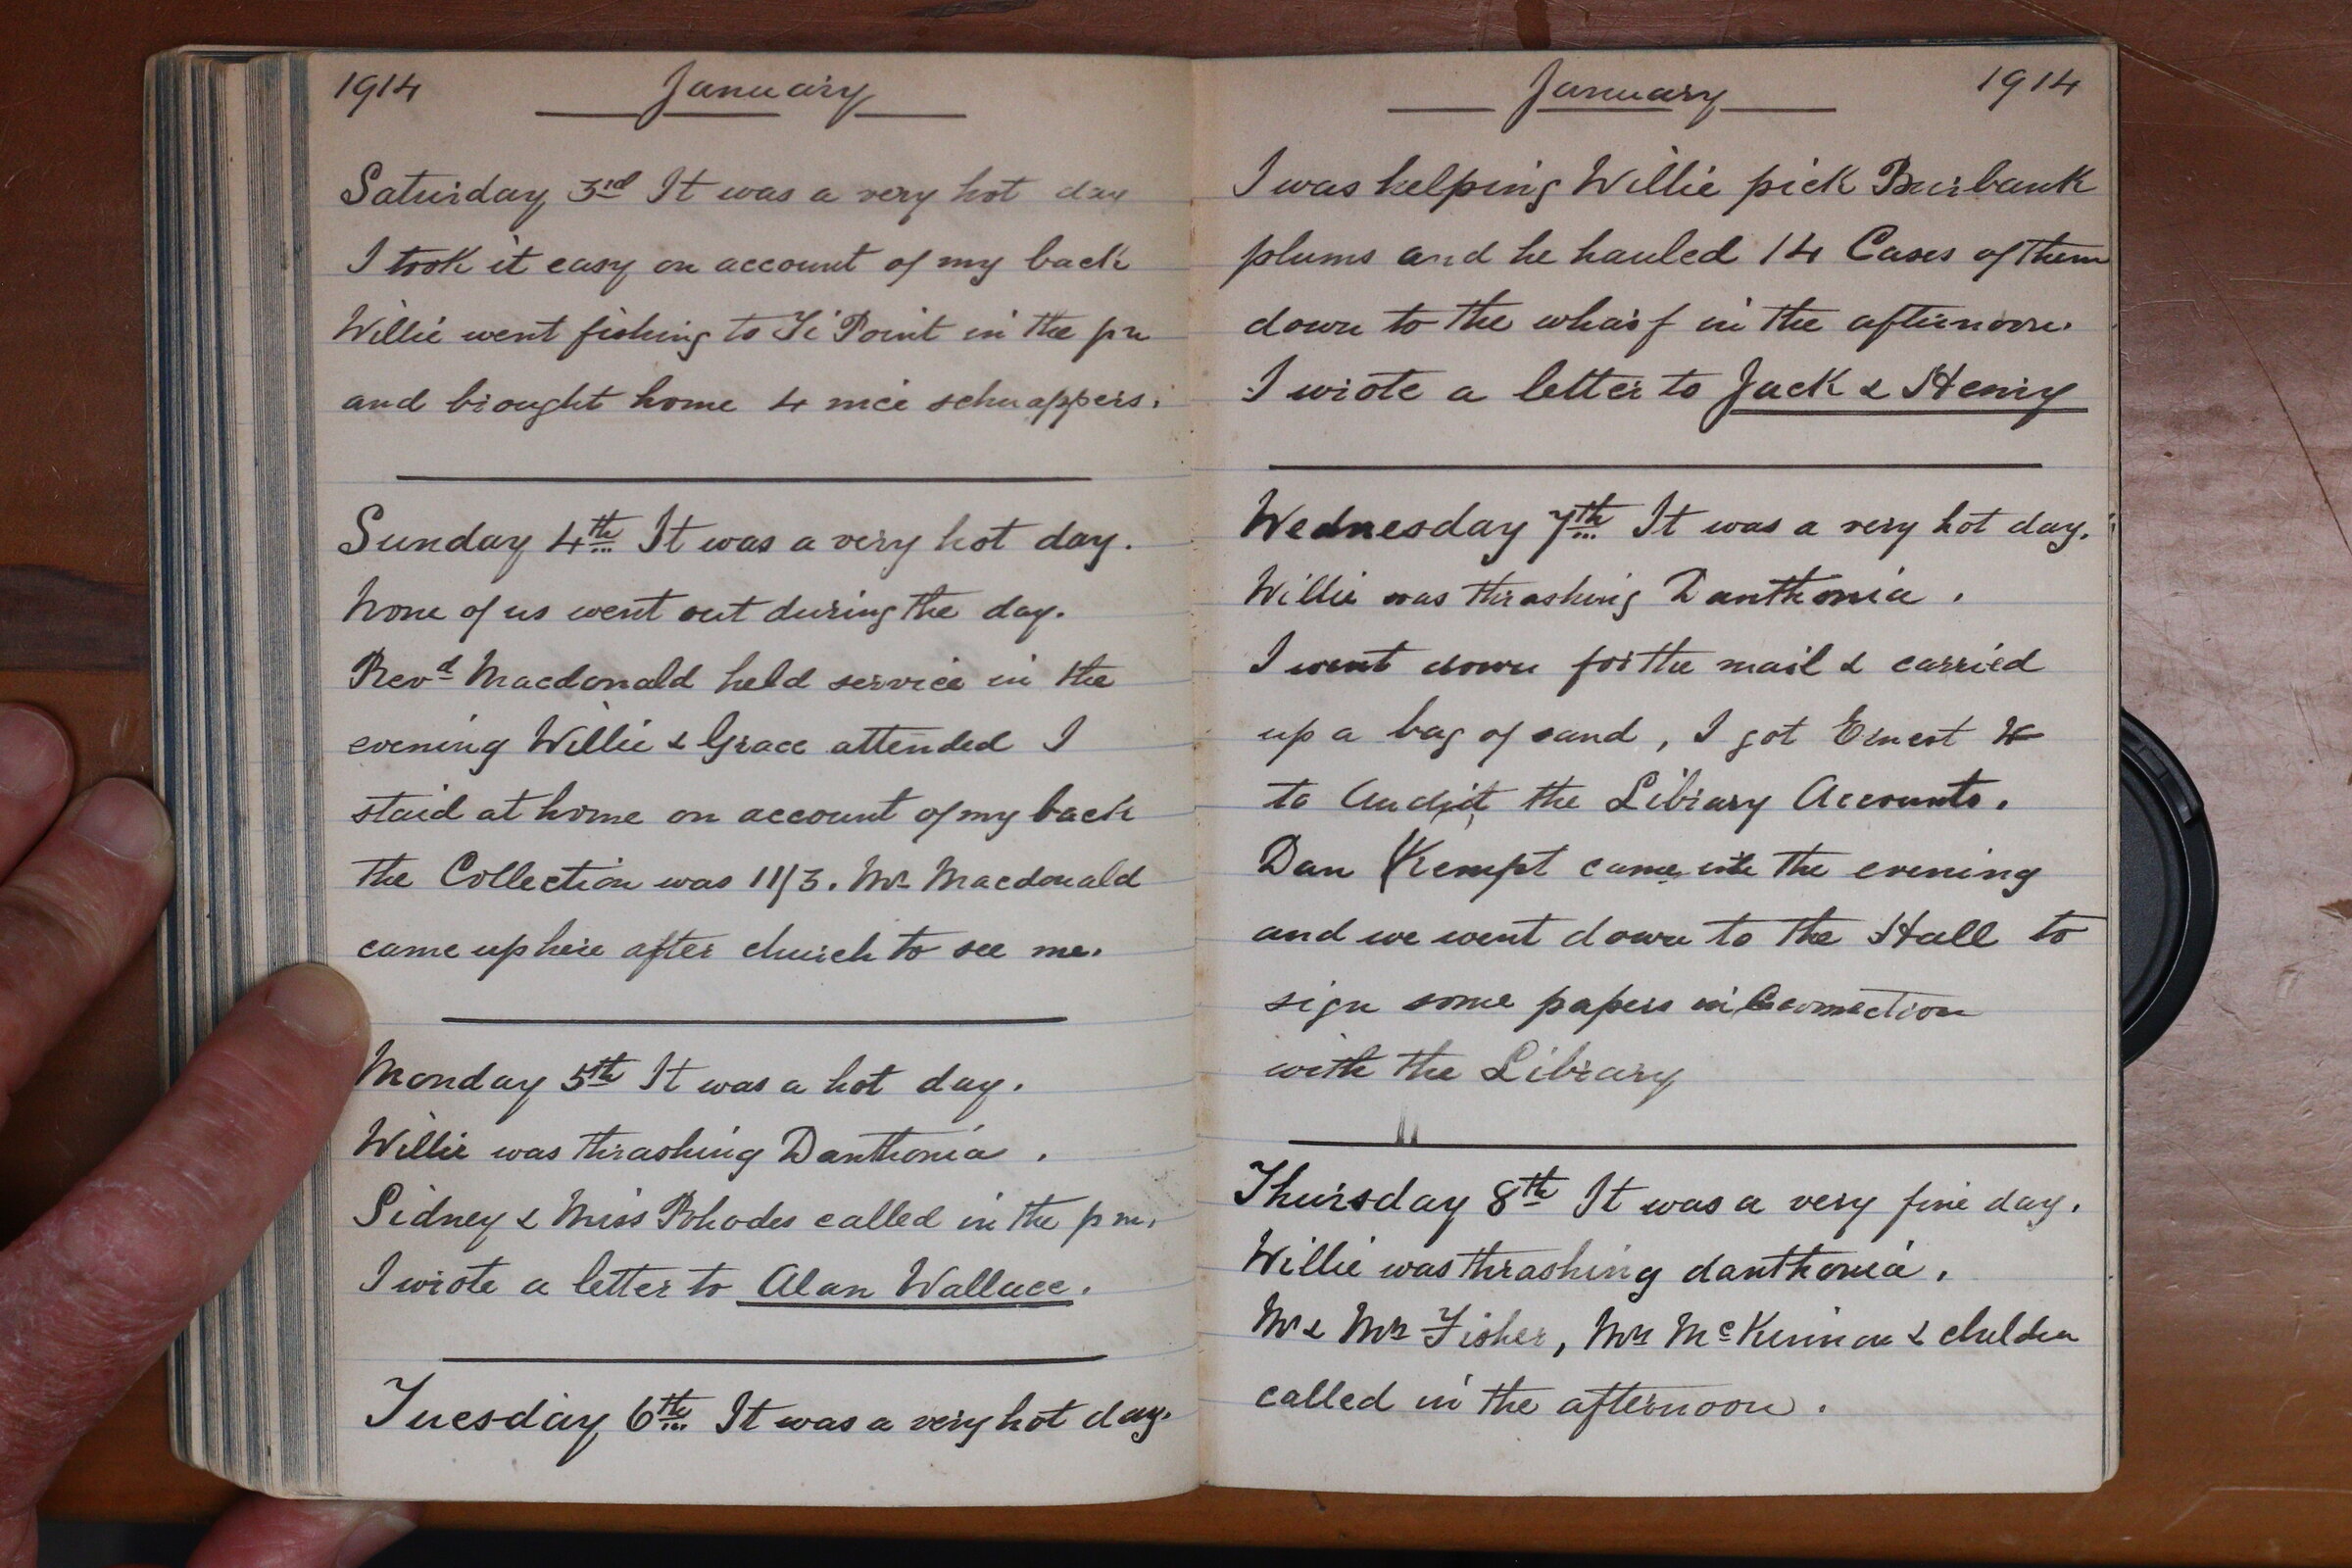 1914 January
Saturday 3rd It was a very hot day
I took it easy on account of my back
Willie went fishing to Ti Point in the pm
and brought home 4 nice schnappers.
Sunday 4th It was a very hot day.
None of us went out during the day.
Revd Macdonald held service in the
evening Willie & Grace attended I
staid at home on account of my back
the Collection was 11/3. Mr Macdonald
came up here after church to see me.
Monday 5th It was a hot day.
Willie was thrashing Danthonia.
Sidney & Miss Rhodes called in the pm.
I wrote a letter to Alan Wallace.
Tuesday 6th It was a very hot day.
January 1914
I was helping Willie pick Burbank
plums and he hauled 14 Cases of them
down to the wharf in the afternoon.
I wrote a letter to Jack & Henry
Wednesday 7th It was a very hot day.
Willie was thrashing Danthonia.
I went down for the mail & carried
up a bag of sand, I got Ernest
to Audit the Library Accounts.
Dan Kempt came in the evening
and we went down to the Hall to
sign some papers in Connection
with the Library
Thursday 8th It was a very fine day.
Willie was thrashing danthonia.
Mr & Mrs Fisher, Mrs McKinnon & children
called in the afternoon.